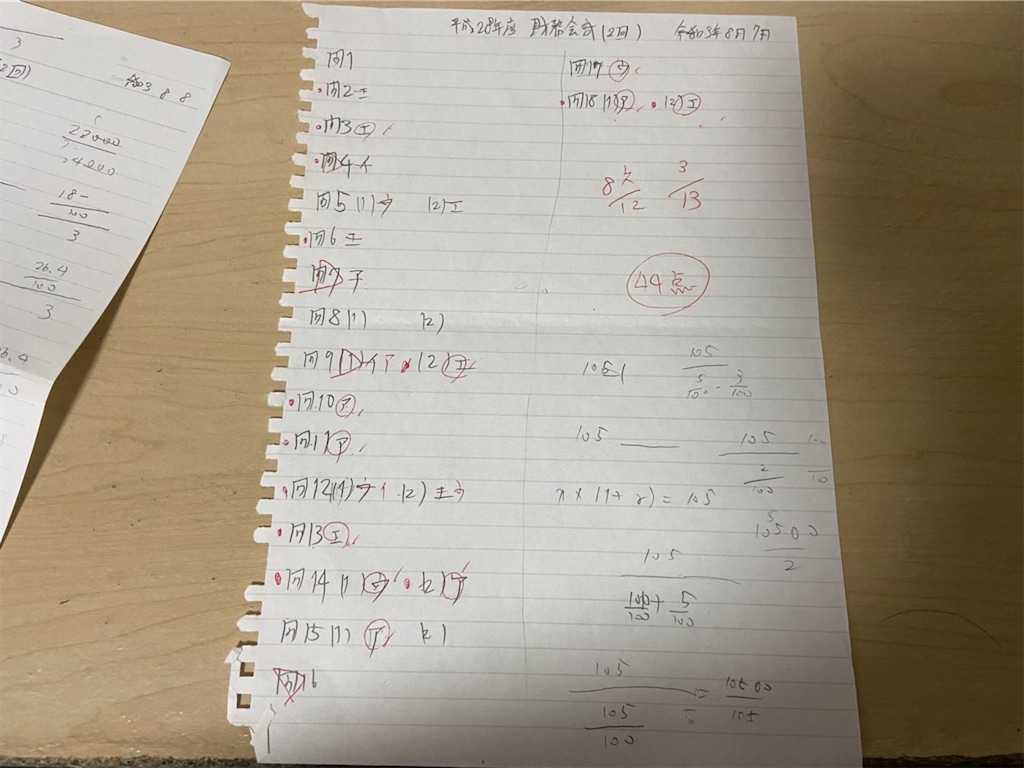 平成28年度 財務会計(2回) 令和3年8月7日
問1
問2 エ
問3 エ
問4 イ
問5 (1) ウ (2) エ
問6 エ
問7
問8 (1) (2)
問9 (1) イ (2) エ
問10 ア
問11 ア
問12 (1) ウ イ (2) エ ウ
問13 エ
問14 (1) ウ (2) ア
問15 (1) ア (2)
問16
問17 ウ
問18 (1) ア (2) エ
8/12 3/13
44点
105
105
5/100 - 3/100
105
105
2/100
x × (1 + r) = 105
10500
2
105
100/100 + 5/100
105
105
100
=
10500
105
2回)
令和3 8 8
3
22000
18-
100
3
26.4
100
3